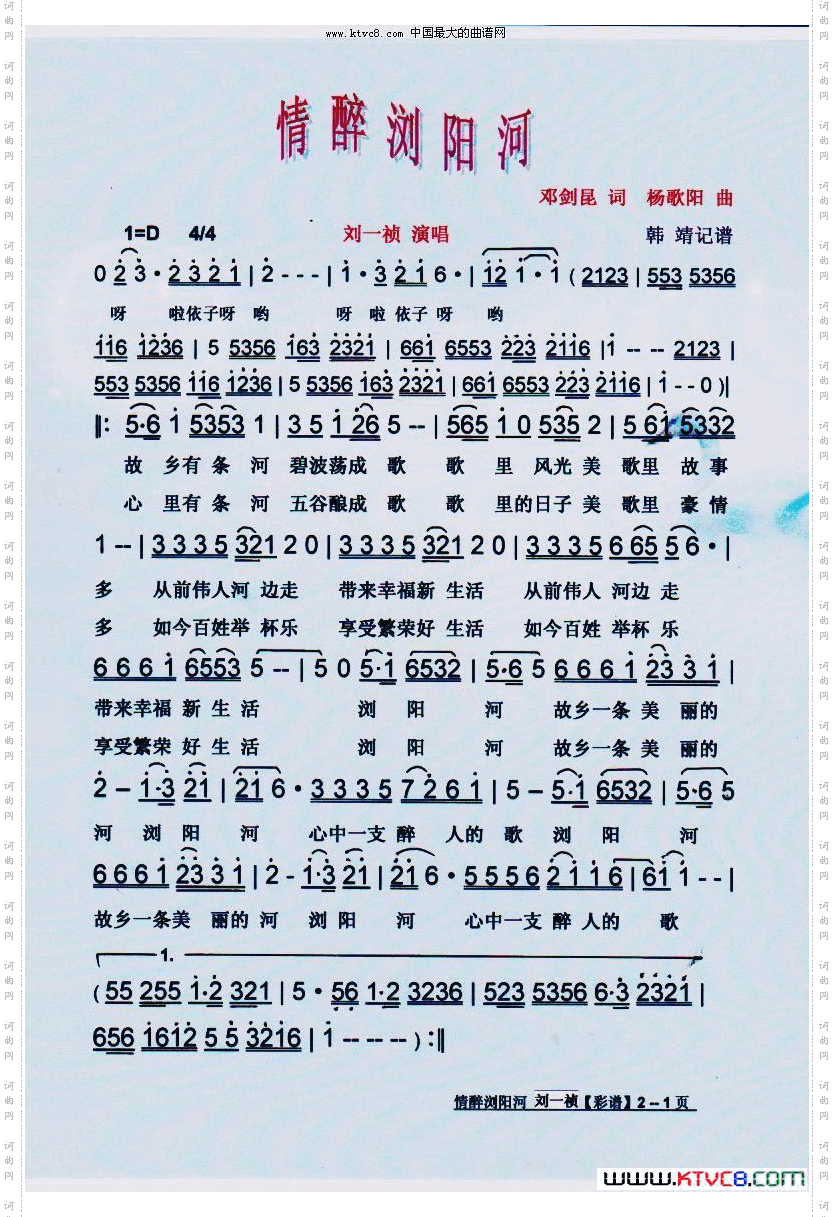 www.ktvc8.com 中国最大的曲谱网
情醉浏阳河
邓剑昆 词 杨歌阳 曲
1=D 4/4 刘一祯 演唱 韩 靖记谱
0 2 3 · 2 3 2 1 | 2 - - - | 1 · 3 2 1 6 · | 12 1 · 1 ( 2123 | 553 5356
呀 啦依子呀 哟 呀 啦 依子 呀 哟
116 1236 | 5 5356 163 2321 | 661 6553 223 2116 | 1 -- -- 2123 |
553 5356 116 1236 | 5 5356 163 2321 | 661 6553 223 2116 | 1 - - 0 )|
‖: 5·6 1 5353 1 | 3 5 1 26 5 -- | 565 1 0 535 2 | 5 61 5332
故 乡有 条 河 碧波荡成 歌 歌 里 风光 美 歌里 故 事
心 里有 条 河 五谷酿成 歌 歌 里的日子 美 歌里 豪 情
1 -- | 3 3 3 5 321 2 0 | 3 3 3 5 321 2 0 | 3 3 3 5 6 65 5 6 · |
多 从前伟人河 边走 带来幸福新 生活 从前伟人 河边 走
多 如今百姓举 杯乐 享受繁荣好 生活 如今百姓 举杯 乐
6 6 6 1 6553 5 -- | 5 0 5·1 6532 | 5·6 5 6 6 6 1 23 3 1 |
带来幸福 新 生 活 浏 阳 河 故乡一条 美 丽的
享受繁荣 好 生 活 浏 阳 河 故乡一条 美 丽的
2 – 1·3 21 | 21 6 · 3 3 3 5 7 2 6 1 | 5 – 5·1 6532 | 5·6 5
河 浏 阳 河 心中一支 醉 人的 歌 浏 阳 河
6 6 6 1 23 3 1 | 2 - 1·3 21 | 21 6 · 5 5 5 6 2 1 1 6 | 61 1 - - |
故乡一条美 丽的 河 浏 阳 河 心中一支 醉 人的 歌
1.
( 55 255 1·2 321 | 5 · 56 1·2 3236 | 523 5356 6·3 2321 |
656 1612 5 5 3216 | 1 -- -- -- ) :‖
情醉浏阳河 刘一祯【彩谱】2 -- 1 页
www.KTVC8.com